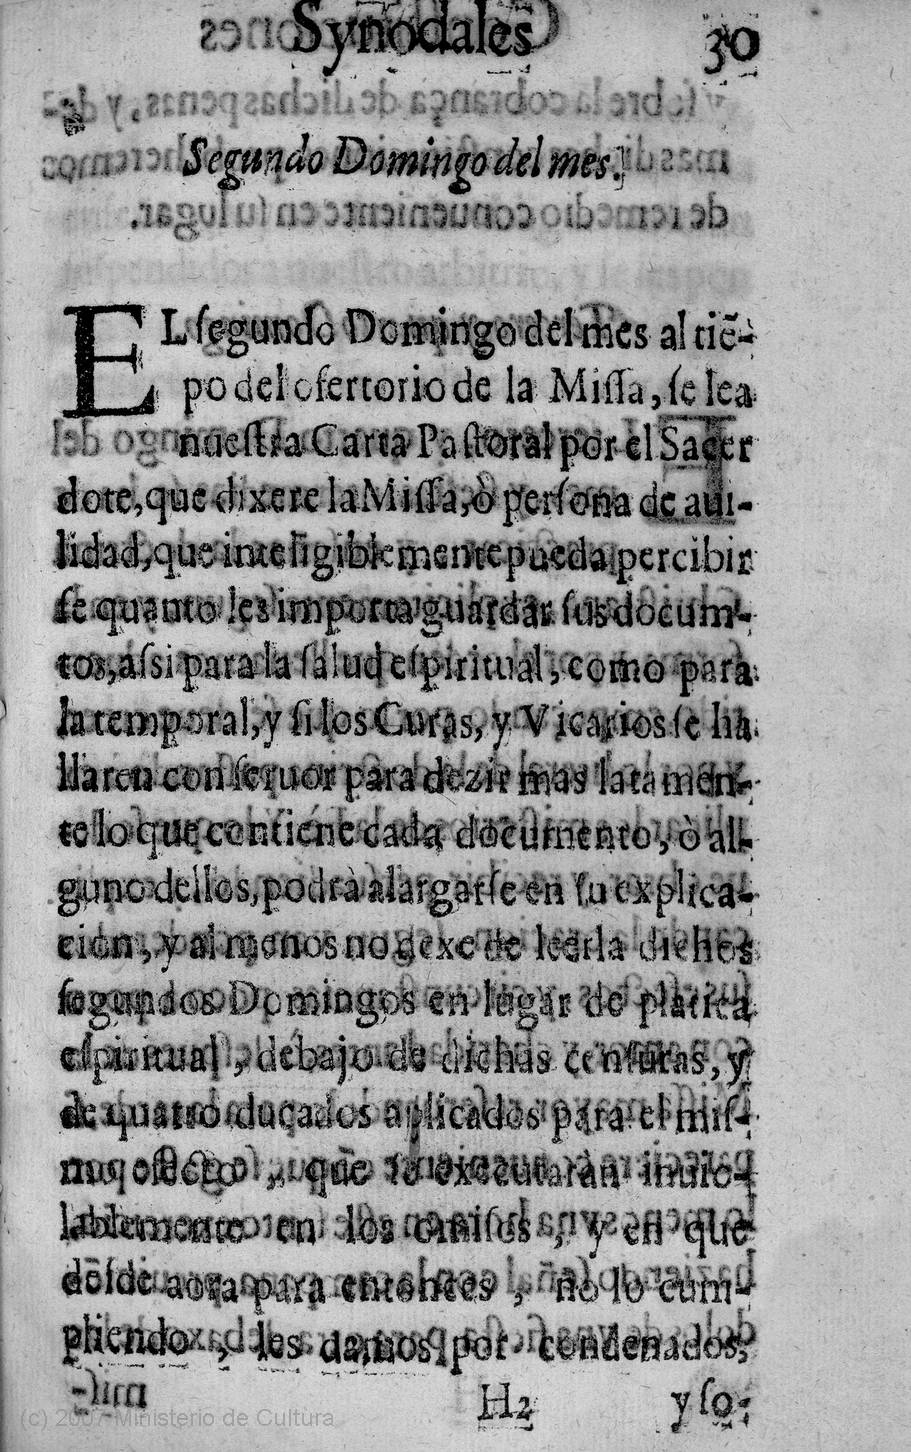 Synodales 30
Segundo Domingo del mes.
EL ſegundo Domingo del mes al tiẽ-
po del ofertorio de la Miſſa, ſe lea
nueſtra Carta Paſtoral por el Sacer
dote, que dixere la Miſſa, ò perſona de aui-
lidad, que inteligiblemente pueda percibir
ſe quanto les importa guardar ſus docum-
tos, aſsi para la ſalud eſpiritual, como para
la temporal, y ſi los Curas, y Vicarios ſe ha
llaren con feruor para dezir mas latamen-
te lo que contiene cada documento, ò al-
guno dellos, podrà alargarſe en ſu explica-
cion, y al menos no dexe de leerla dichos
ſegundos Domingos en lugar de platica
eſpiritual, debajo de dichas cenſuras, y
de quatro ducados aplicados para el miſ-
mo efecto, que ſe executaràn inuio-
lablemente en los omiſos, y en que
deſde aora para entonces, no lo cum-
pliendo, les damos por condenados,
H2 y ſo-
(c) 2007 Ministerio de Cultura